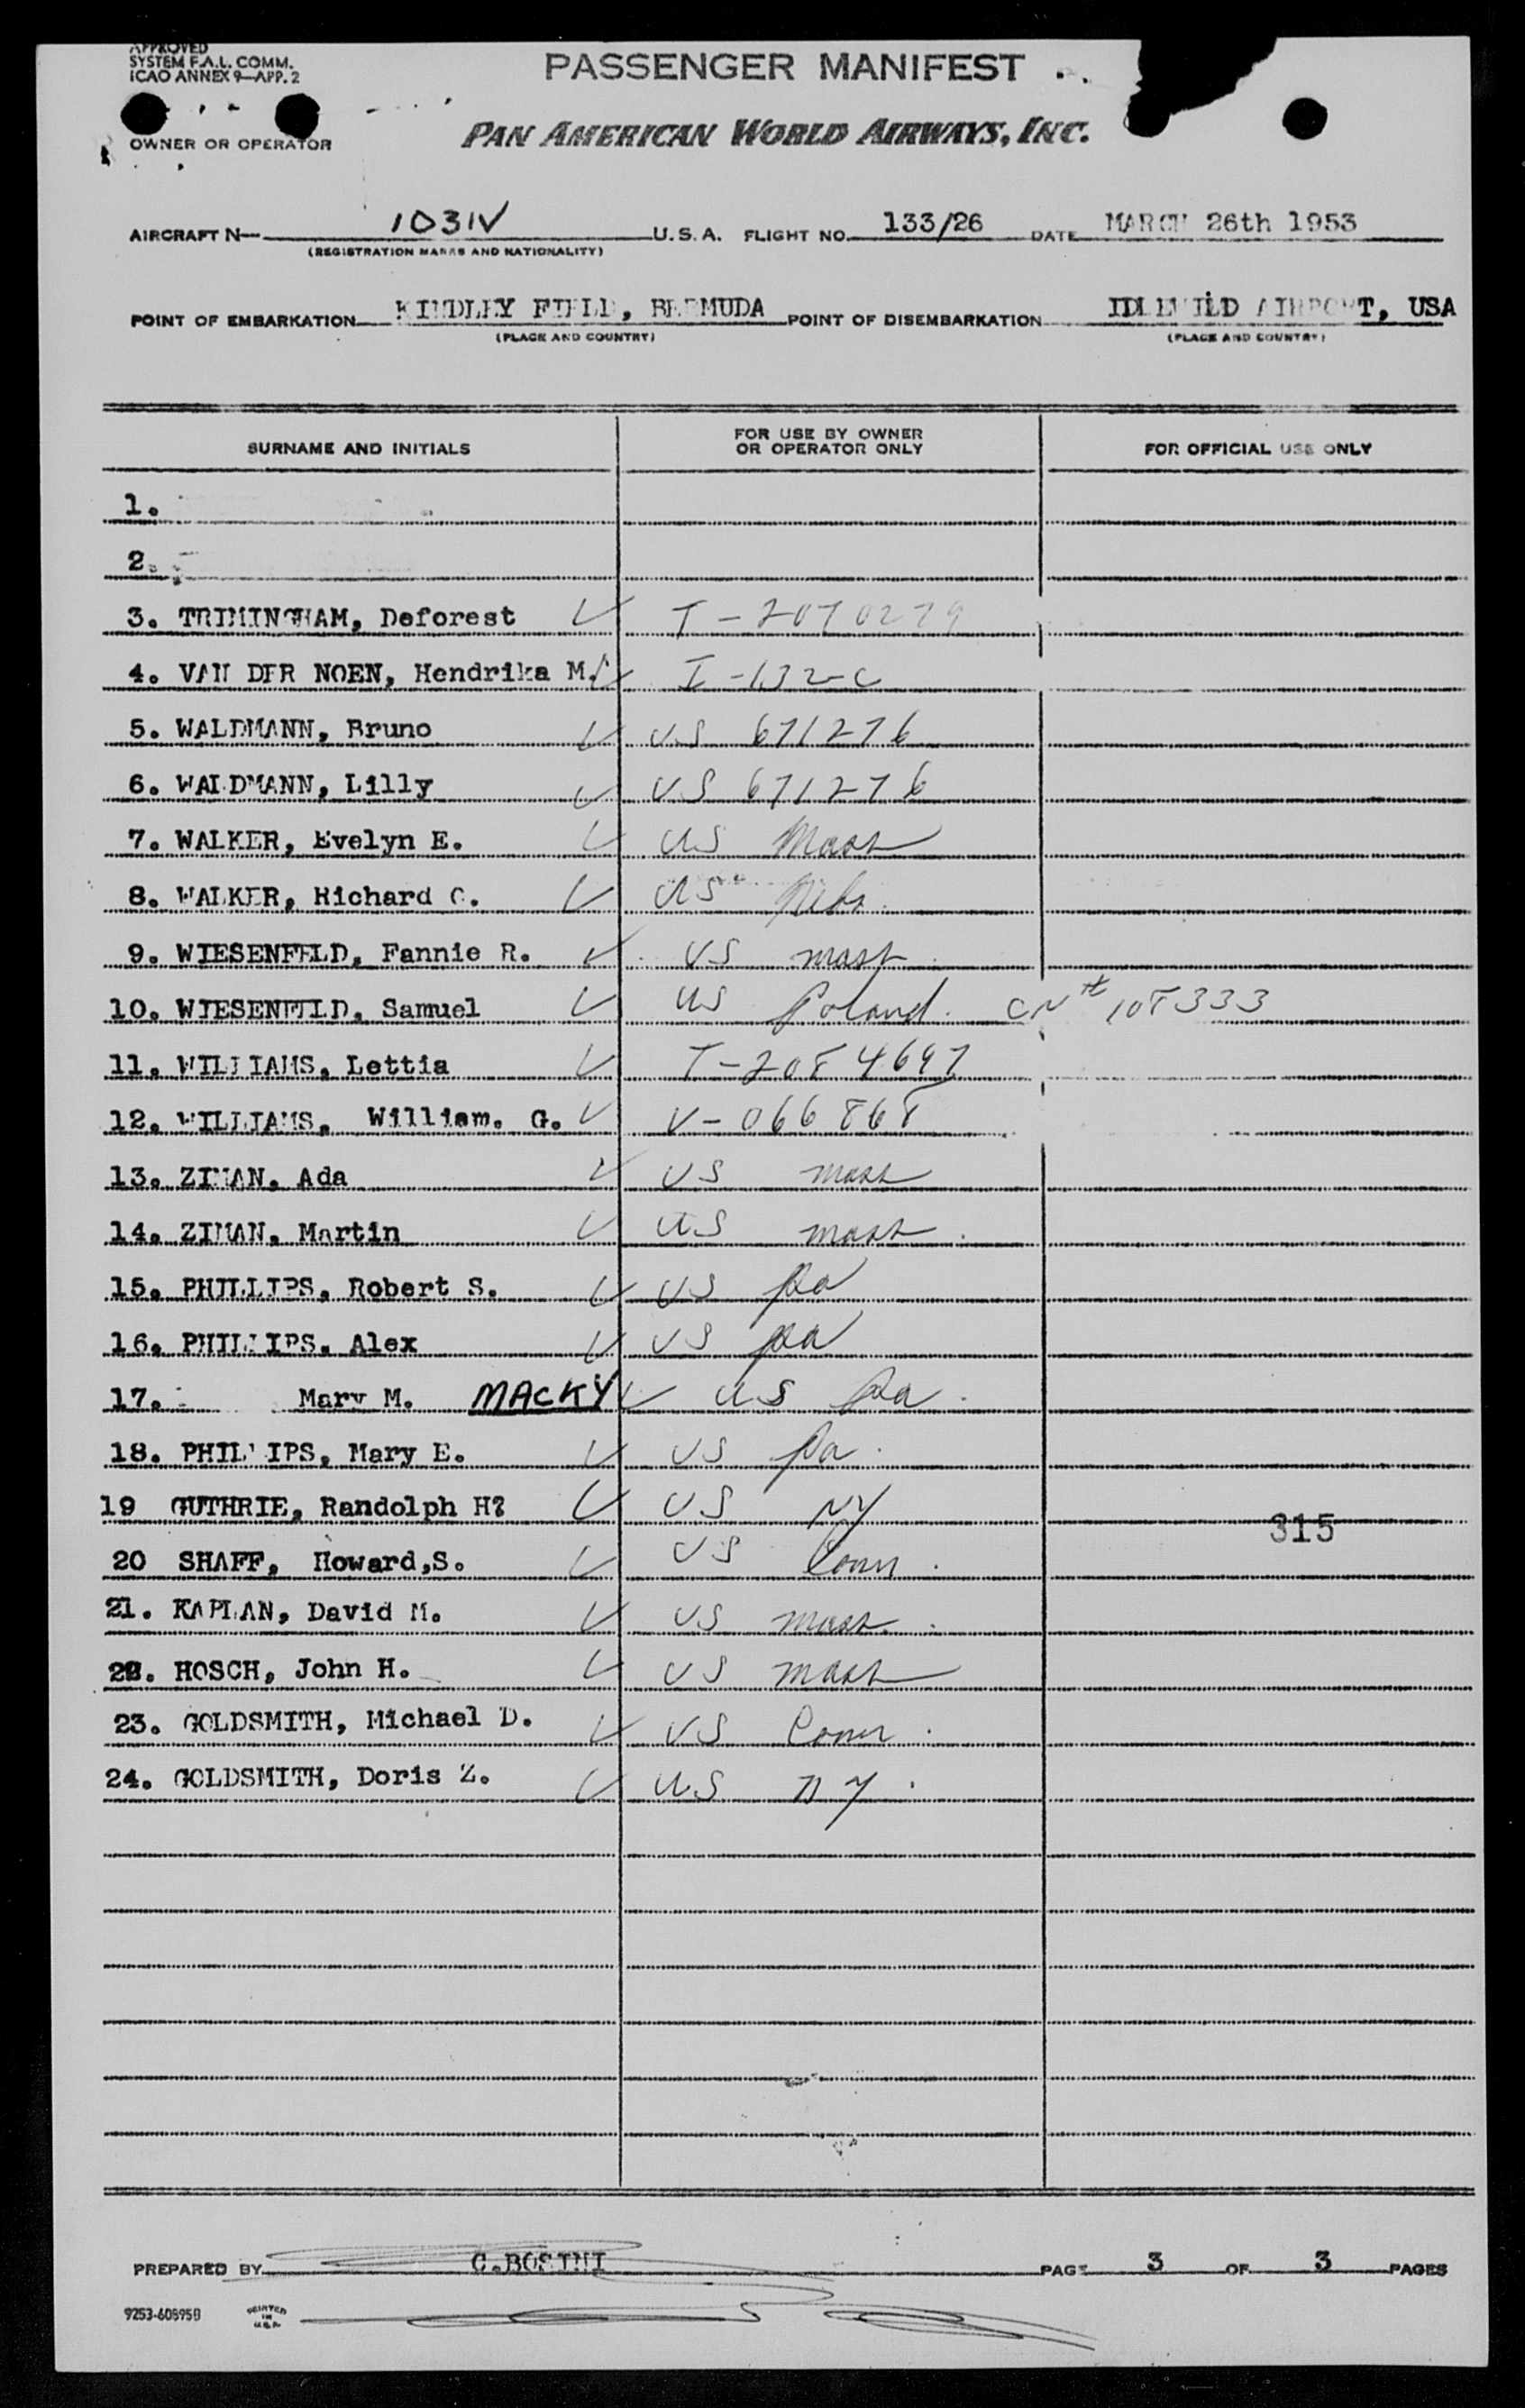 APPROVED
SYSTEM F.A.L. COMM.
ICAO ANNEX 9—APP. 2
PASSENGER MANIFEST
OWNER OR OPERATOR
PAN AMERICAN WORLD AIRWAYS, INC.
AIRCRAFT N— 1031V U.S.A. FLIGHT NO. 133/26 DATE MARCH 26th 1953
(REGISTRATION MARKS AND NATIONALITY)
POINT OF EMBARKATION KINDLEY FIELD, BERMUDA POINT OF DISEMBARKATION IDLEWILD AIRPORT, USA
(PLACE AND COUNTRY) (PLACE AND COUNTRY)
SURNAME AND INITIALS FOR USE BY OWNER OR OPERATOR ONLY FOR OFFICIAL USE ONLY
1.
2.
3. TRIMINGHAM, Deforest ✓ I-2070279
4. VAN DER NOEN, Hendrika M. ✓ I-132-C
5. WALDMANN, Bruno ✓ US 671276
6. WALDMANN, Lilly ✓ US 671276
7. WALKER, Evelyn E. ✓ US Mass
8. WALKER, Richard C. ✓ US Nebr.
9. WIESENFELD, Fannie R. ✓ US mass
10. WIESENFELD, Samuel ✓ US Poland. CN# 108333
11. WILLIAMS, Lettia ✓ I-2084697
12. WILLIAMS, William. G. ✓ V-066868
13. ZIMAN, Ada ✓ US mass
14. ZIMAN, Martin ✓ US mass
15. PHILLIPS, Robert S. ✓ US Pa
16. PHILLIPS, Alex ✓ US Pa
17. Mary M. MACKY ✓ US Pa
18. PHILLIPS, Mary E. ✓ US Pa
19 GUTHRIE, Randolph H? ✓ US NY
315
20 SHAFF, Howard,S. ✓ US Conn
21. KAPLAN, David M. ✓ US mass
22. HOSCH, John H. ✓ US mass
23. GOLDSMITH, Michael D. ✓ US Conn
24. GOLDSMITH, Doris Z. ✓ US NY
PREPARED BY C.BOSINI PAGE 3 OF 3 PAGES
9253-60895B PRINTED IN U.S.A.